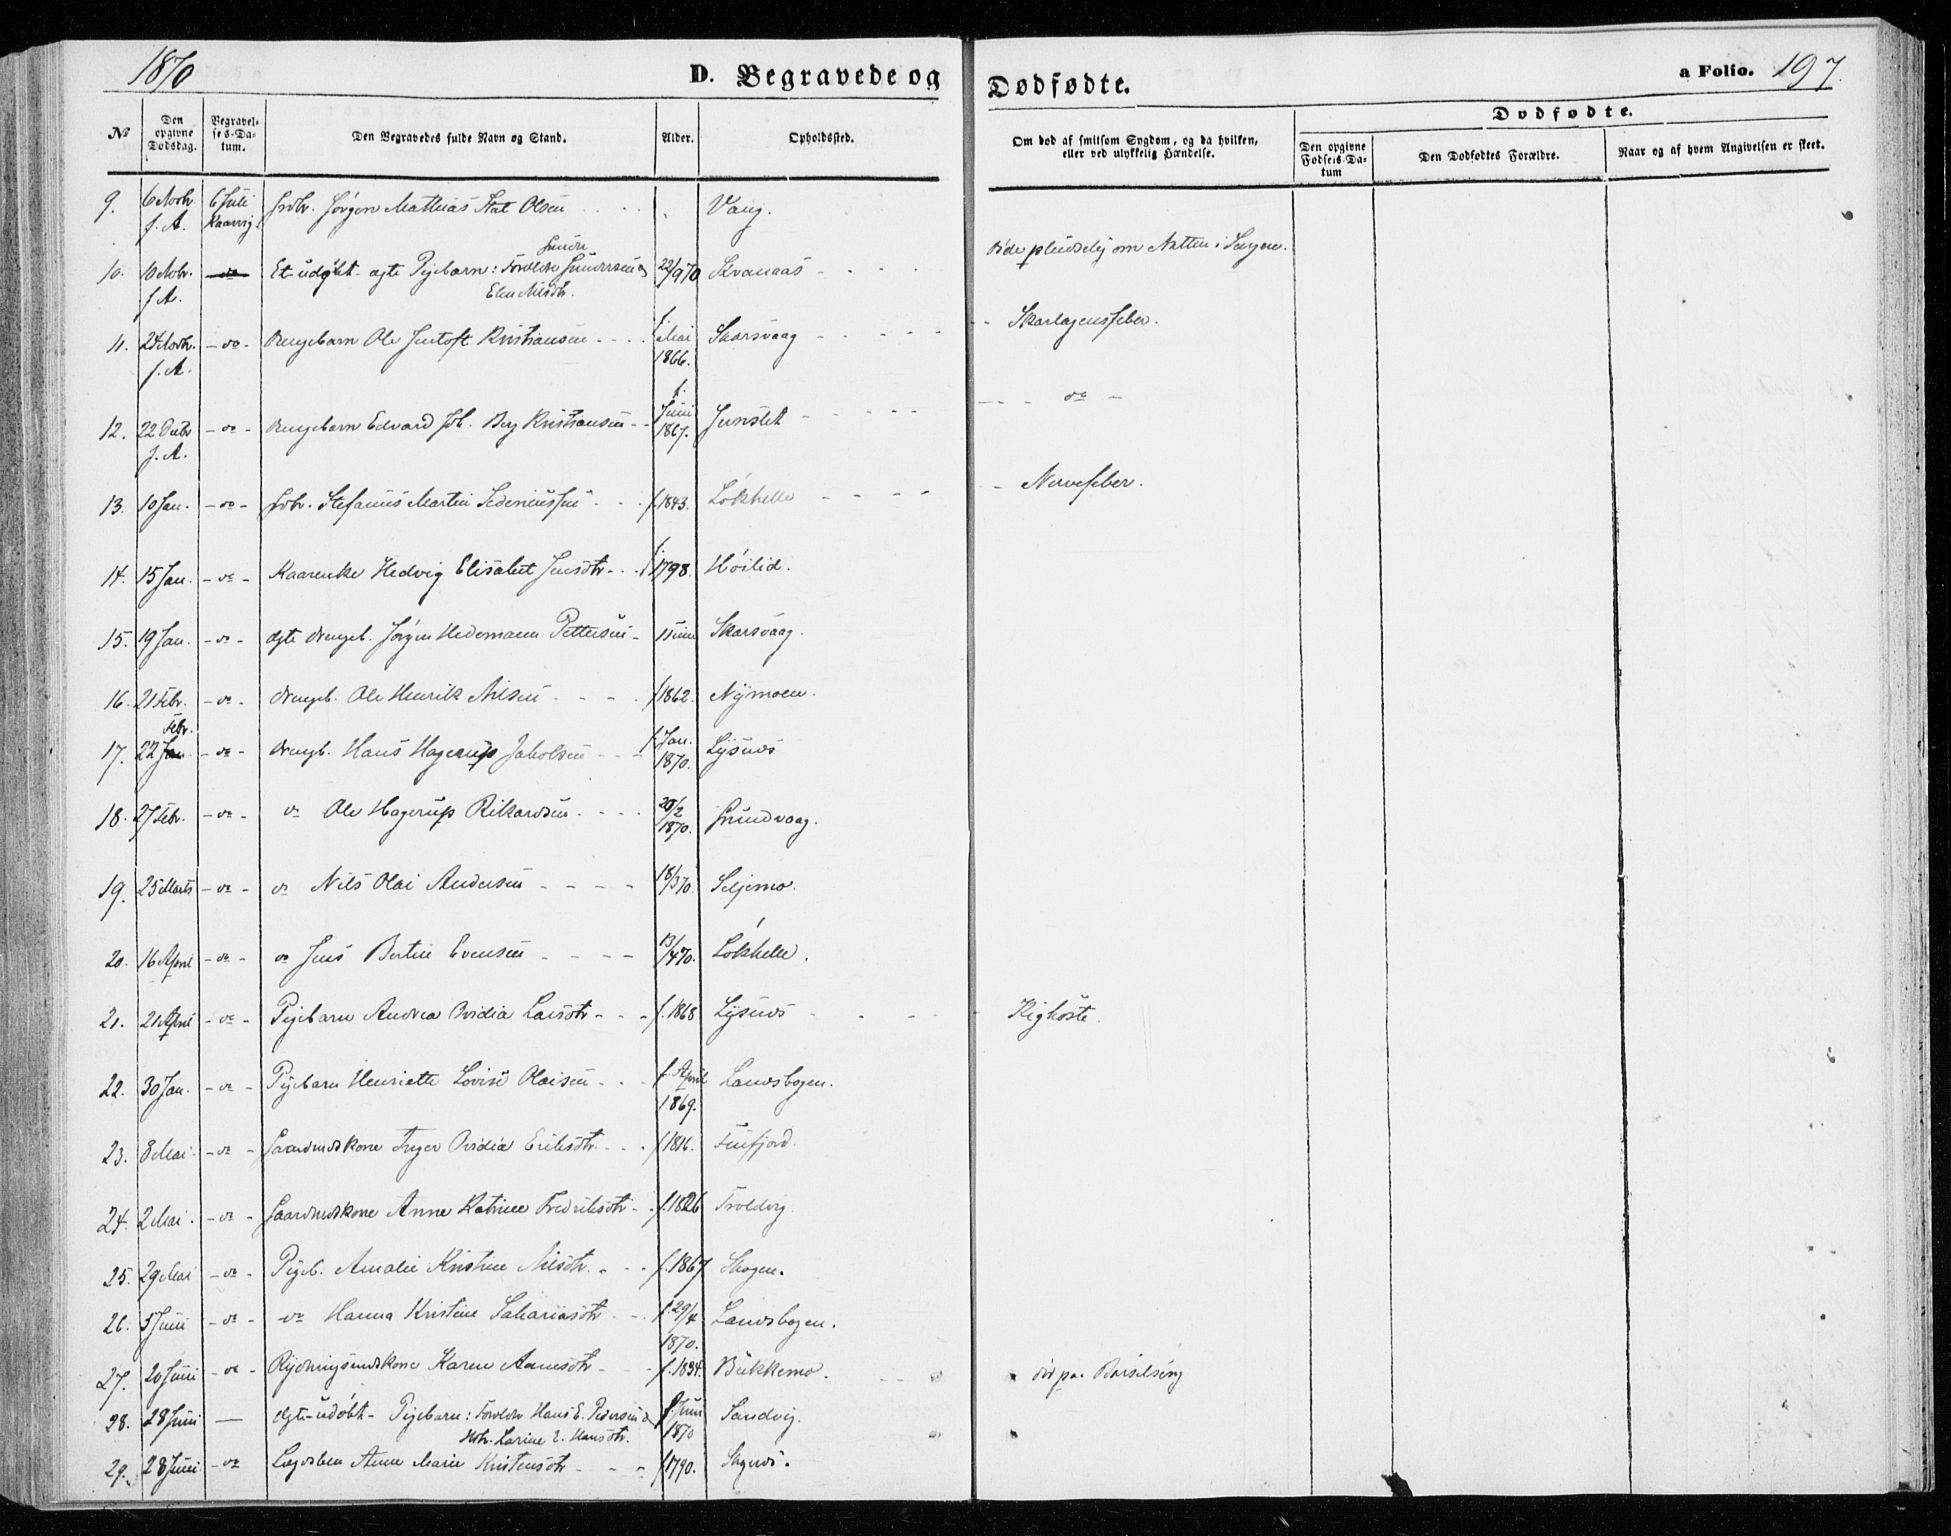 1870
D. Begravede og
Dødfødte.
a Folio. 197.
№
Den opgivne Dødsdag.
Begravelses-Datum.
Den Begravedes fulde Navn og Stand.
Alder.
Opholdssted.
Om død af smitsom Sygdom, og da hvilken, eller ved ulykkelig Hændelse.
Dødfødte.
Den opgivne Fødsels-Datum
Den Dødfødtes Forældre.
Naar og af hvem Angivelsen er skeet.
9. 6 Novbr. f. A. 6 Juli Jørgen Mathias Olsen Vang.
10. 10 Novbr. f. A. do Et udøbt ægte Pigebarn: Forældre Elen Nilsdtr. 22/9 70 Kvanaas Døde pludselig om Natten i Sengen.
11. 24 Novbr. f. A. - do - Drengebarn Ole Jentoft Kristiansen f. Mai 1866. Skarsvaag - Skarlagensfeber.
12. 22 Decbr f. A. - do - Drengebarn Edvard Joh. Berg Kristiansen f. Juni 1867. - do -
13. 10 Jan. - do - Stefanus Martin f. 1843. Løkhelle - Nervefeber.
14. 15 Jan. - do - Kaarenke Hedvig Elisabet Jensdtr. f. 1798. Høilid.
15. 19 Jan. - do - ægte Drengeb. Jørgen Hedemann Pettersen Skarsvaag.
16. 21 Febr. - do - Drengeb. Ole Henrik Nilsen f 1862. Nymoen.
17. 22 Jan Febr. - do - Drengb. Hans Hagerup Jakobsen f. Jan. 1870. Lysnes
18. 27 Febr. - do - do Ole Hagerup Rikardsen 20/2 1870. Grundvaag.
19. 25 Marts - do - do Nils Olai Andersen 18/3 70. Seljemo.
20. 16 April - do - do Jens Bertin Evensen 13/4 70. Løkhelle.
21. 21 April - do - Pigebarn Andrea Ovidia Larsdtr f. 1868 Lysnes Kighoste.
22. 30 Jan. - do - Pigebarn Henriette Lovise Olaisen f. April 1869. Lansbogen.
23. 8 Mai - do - Gaardmdskone Inger Ovidia Eriksdtr. f 1816. Finfjord.
24. 2 Mai. - do - Gaardmdskone Anne Katrine Fredriksdtr f. 1826 Troldvig.
25. 29 Mai - do - Pigeb. Amalie Kristine Nilsdtr. f. 1867 Skogen.
26. 5 Juni - do - do Hanna Kristine Sakariasdtr f. 29/4 1870. Landsbogen.
27. 20 Juni - do - Rydningsmdskone Karen f. 1834. Bukkemo. død paa Barselseng
28. 28 Juni — Ægte udøbt Pigebarn: Forældre Hans E. Pedersen & Hstr. Larine E. Hansdtr. f. Juni 1870 Sandvig.
29. 28 Juni - do Lægdslem Anne Marie Kristensdtr f 1790. Skognes.